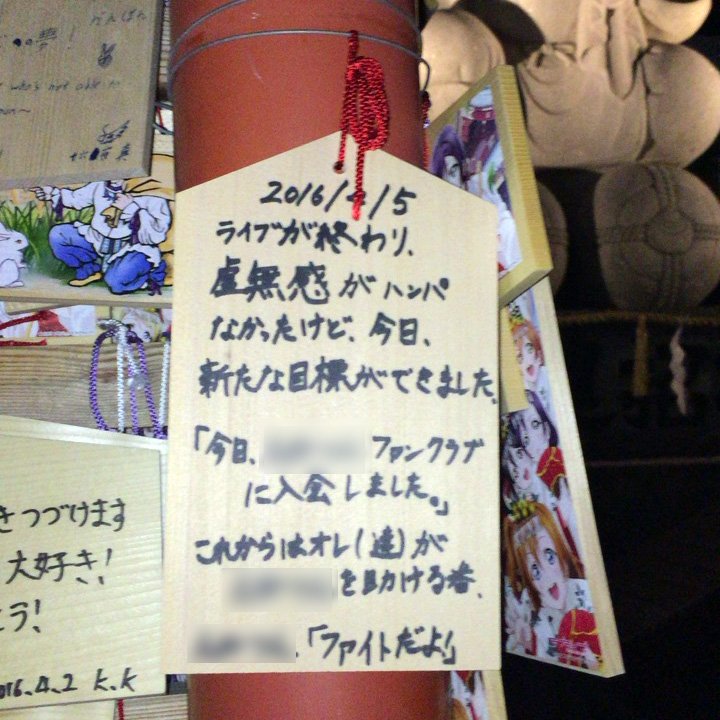 2016/4/5
ライブが終わり、
虚無感がハンパ
なかったけど、今日、
新たな目標ができました。
「今日、 ファンクラブ
に入会しました。」
これからはオレ(達)が
を助ける番、
、「ファイトだよ!」
きつづけます
大好き!
とう!
016.4.2 K.K